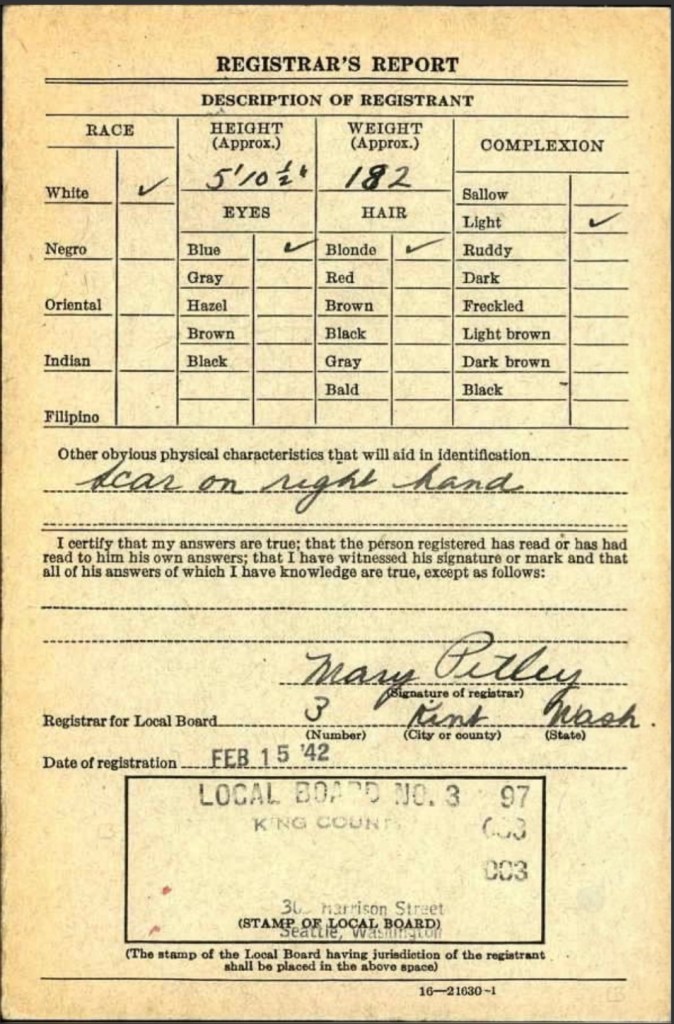 REGISTRAR'S REPORT
DESCRIPTION OF REGISTRANT
RACE HEIGHT (Approx.) WEIGHT (Approx.) COMPLEXION
5' 10 ½" 182
White ✓ Sallow
EYES HAIR Light ✓
Negro Blue ✓ Blonde ✓ Ruddy
Gray Red Dark
Oriental Hazel Brown Freckled
Brown Black Light brown
Indian Black Gray Dark brown
Bald Black
Filipino
Other obvious physical characteristics that will aid in identification
Scar on right hand
I certify that my answers are true; that the person registered has read or has had
read to him his own answers; that I have witnessed his signature or mark and that
all of his answers of which I have knowledge are true, except as follows:
Mary Petley
(Signature of registrar)
Registrar for Local Board 3 Kent Wash.
(Number) (City or county) (State)
Date of registration FEB 15 '42
LOCAL BOARD NO. 3 97
KING COUNTY
003
Harrison Street
(STAMP OF LOCAL BOARD)
Seattle, Washington
(The stamp of the Local Board having jurisdiction of the registrant
shall be placed in the above space)
16—21630-1